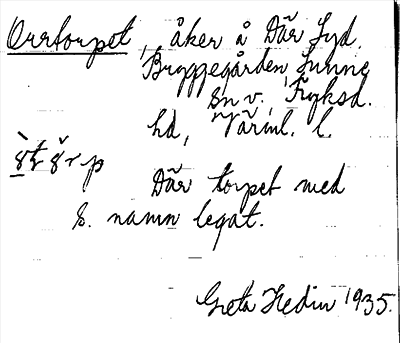 Orrtorpet, åker å Där Lyd.
Bryggegården, Sunne
sn v., Fryksd.
hd, Värml. l.
Där torpet med
s. namn legat.
Greta Hedin 1935.